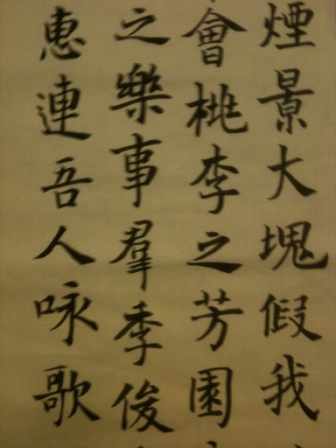 煙景大塊假我
會桃李之芳園
之樂事羣季俊
惠連吾人咏歌